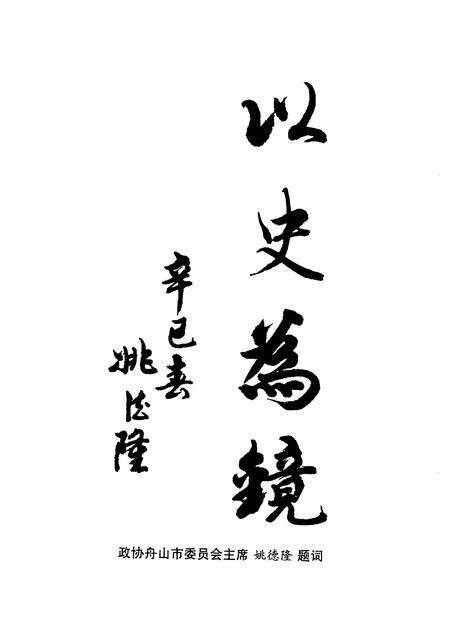 以史為鏡
辛巳春
姚德隆
政协舟山市委员会主席 姚德隆 题词